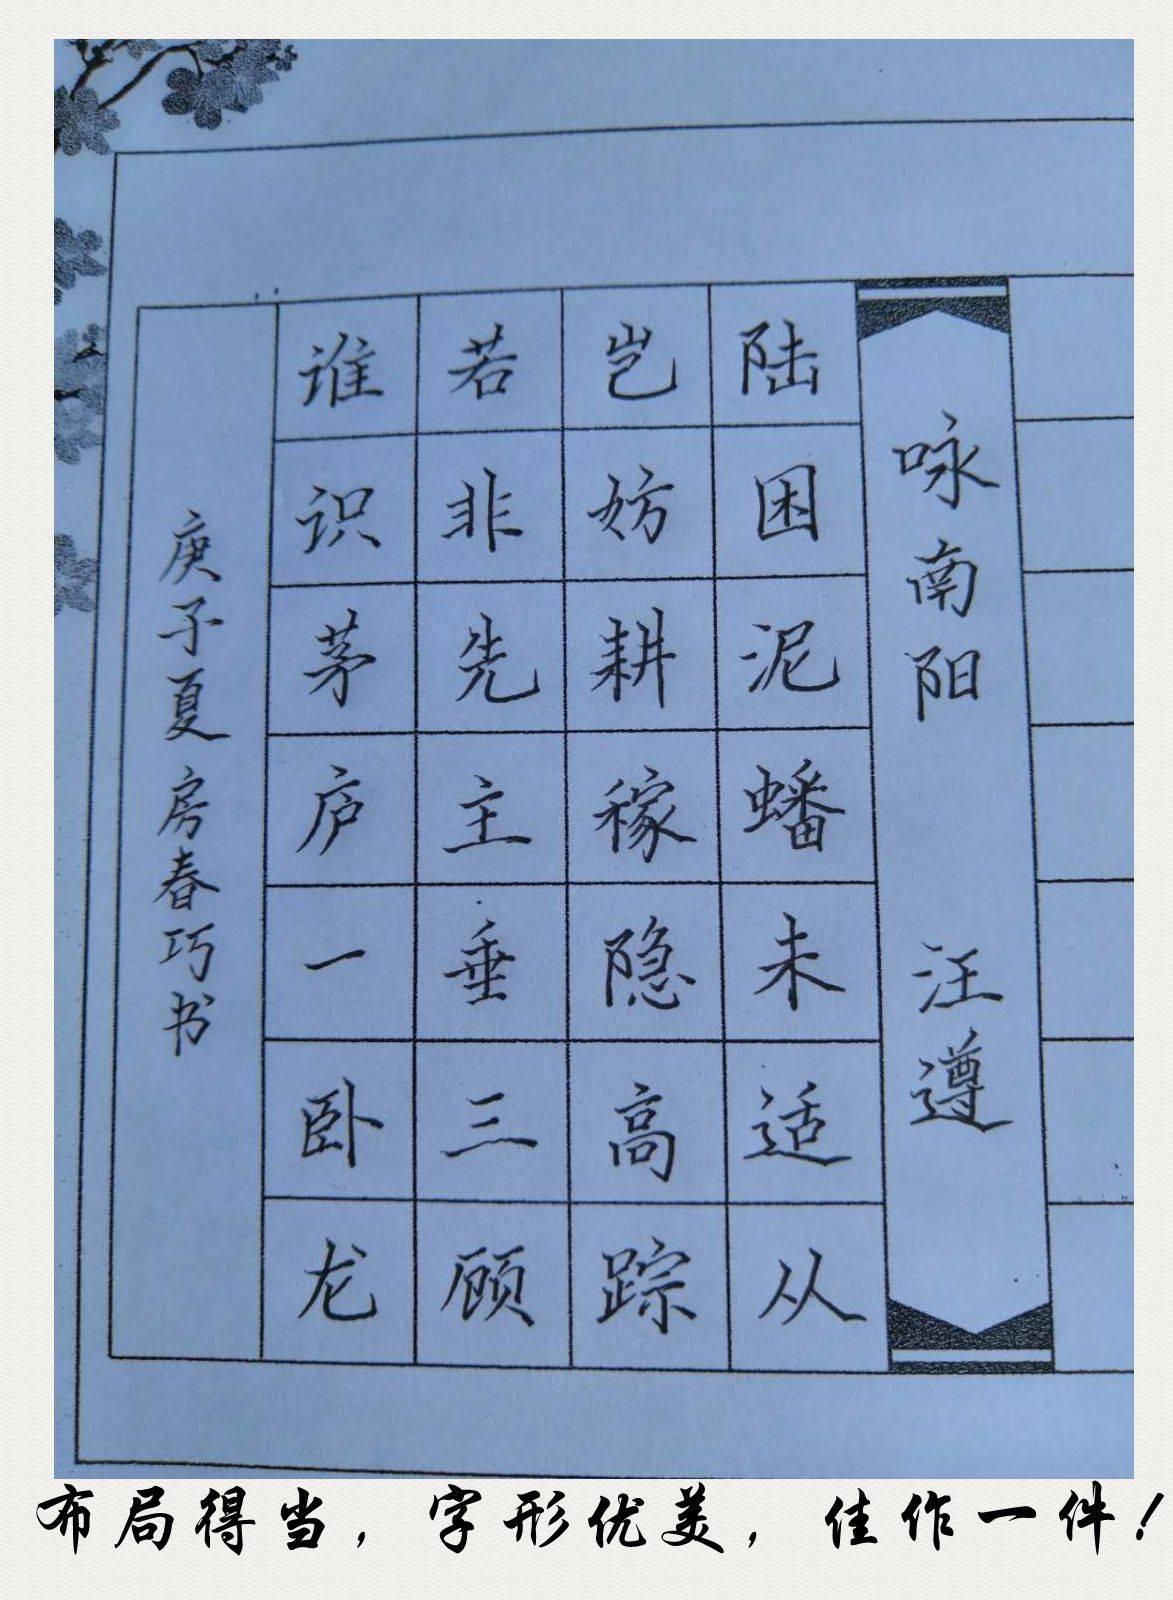 咏南阳 汪遵
陆困泥蟠未适从
岂妨耕稼隐高踪
若非先主垂三顾
谁识茅庐一卧龙
庚子夏房春巧书
布局得当，字形优美，佳作一件！